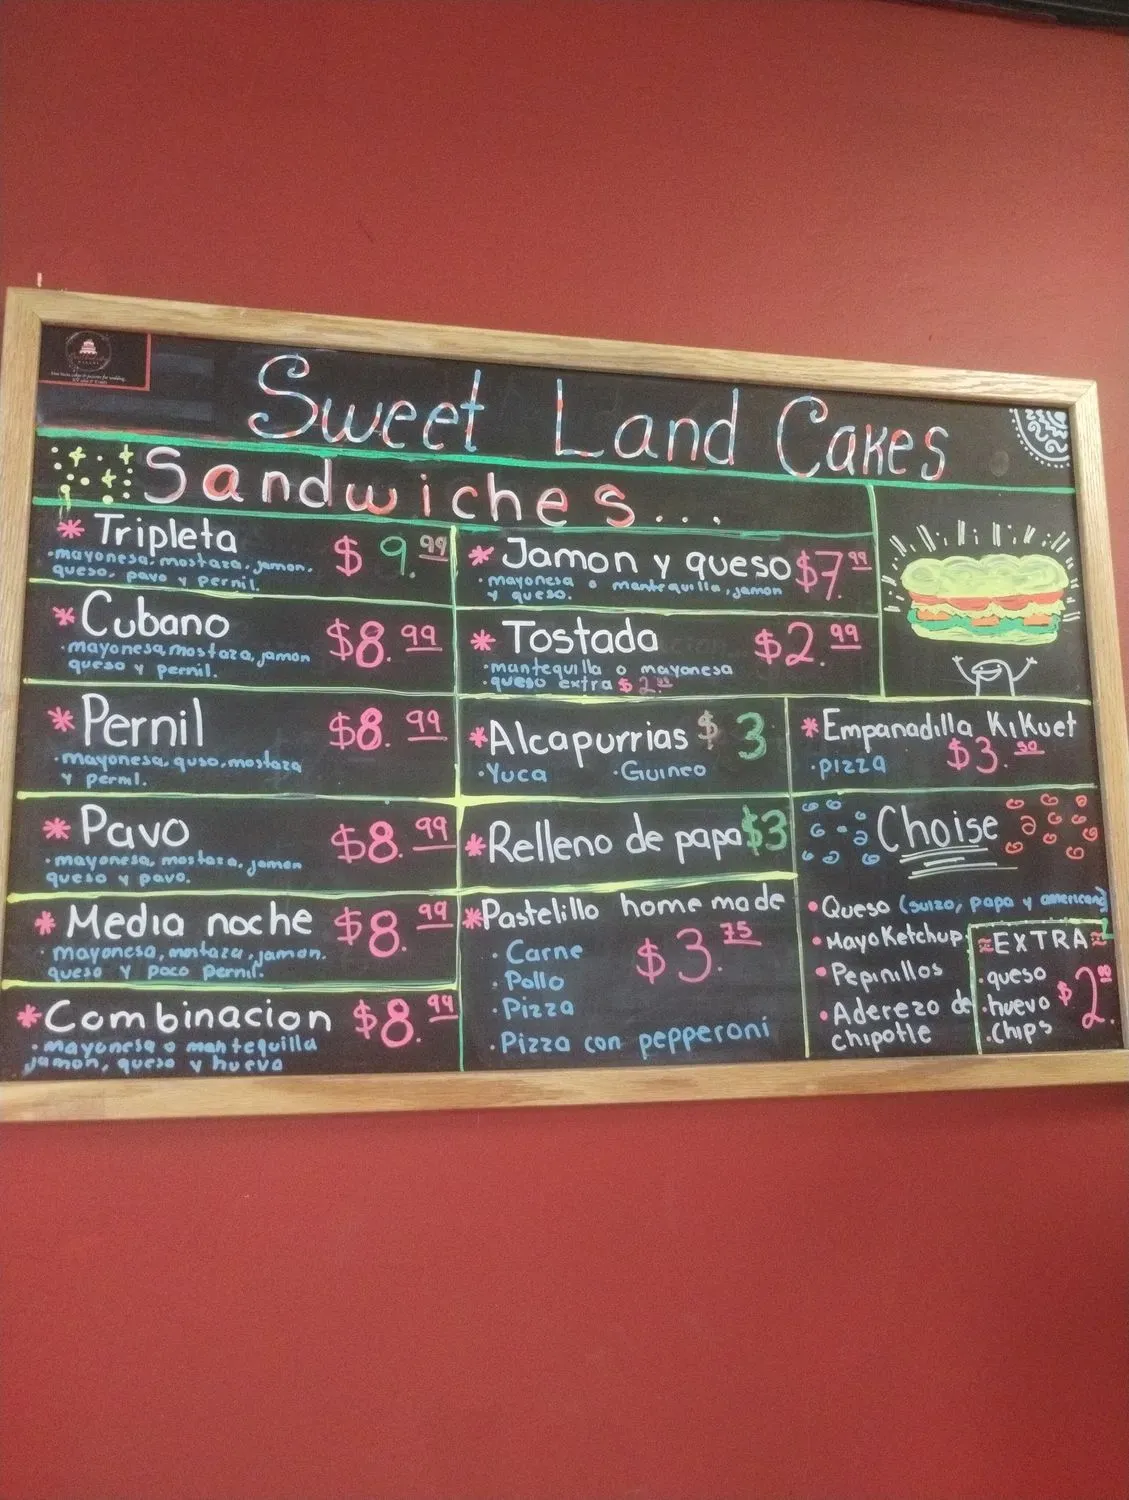 Sweet Land Cakes
Sandwiches...
* Tripleta $9.99
·mayonesa, mostaza, jamon,
queso, pavo y pernil.
* Cubano $8.99
·mayonesa, mostaza, jamon
queso y pernil.
* Pernil $8.99
·mayonesa, quso, mostaza
y pernil.
* Pavo $8.99
·mayonesa, mostaza, jamon
queso y pavo.
* Media noche $8.99
·mayonesa, mostaza, jamon.
queso y poco pernil.
* Combinacion $8.99
·mayonesa o mantequilla
jamon, queso y huevo
* Jamon y queso $7.99
·mayonesa o mantequilla, jamon
y queso.
* Tostada $2.99
·mantequilla o mayonesa
·queso extra $2.
* Alcapurrias $3
·Yuca ·Guineo
* Relleno de papa $3
* Pastelillo home made
$3.75
·Carne
·Pollo
·Pizza
·Pizza con pepperoni
* Empanadilla Kikuet
·pizza $3.50
Choise
·Queso (suizo, papa y american)
·MayoKetchup
·Pepinillos
·Aderezo de
chipotle
EXTRA
·queso
·huevo $2.00
·chips